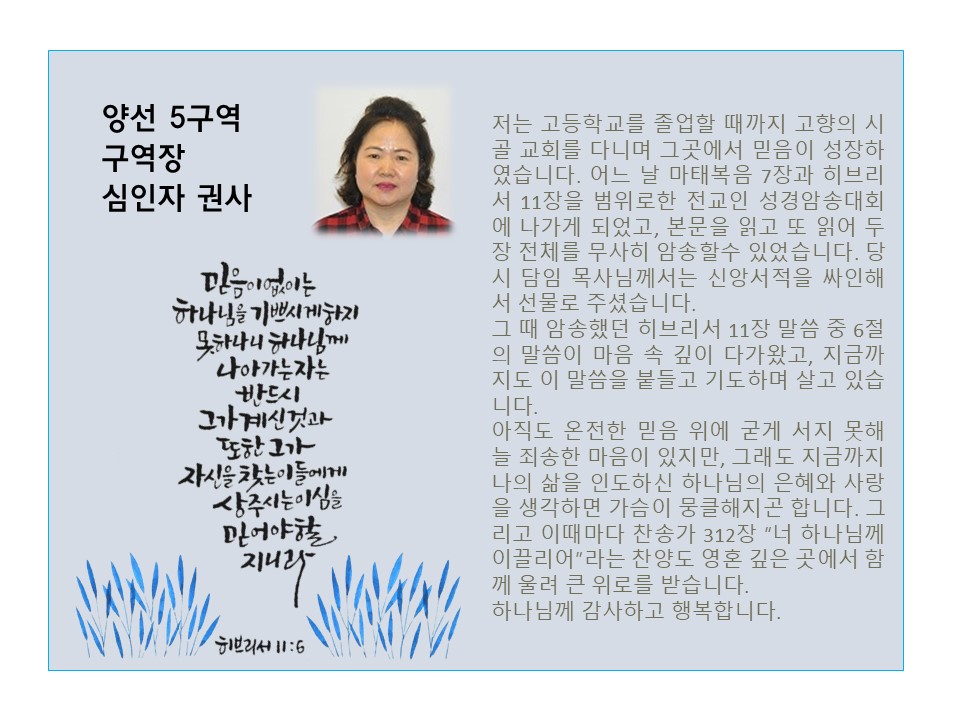 양선 5구역
구역장
심인자 권사
믿음이없이는
하나님을 기쁘시게하지
못하나니 하나님께
나아가는자는
반드시
그가계신것과
또한그가
자신을찾는이들에게
상주시는이심을
믿어야할
지니라
히브리서 11:6
저는 고등학교를 졸업할 때까지 고향의 시
골 교회를 다니며 그곳에서 믿음이 성장하
였습니다. 어느 날 마태복음 7장과 히브리
서 11장을 범위로한 전교인 성경암송대회
에 나가게 되었고, 본문을 읽고 또 읽어 두
장 전체를 무사히 암송할수 있었습니다. 당
시 담임 목사님께서는 신앙서적을 싸인해
서 선물로 주셨습니다.
그 때 암송했던 히브리서 11장 말씀 중 6절
의 말씀이 마음 속 깊이 다가왔고, 지금까
지도 이 말씀을 붙들고 기도하며 살고 있습
니다.
아직도 온전한 믿음 위에 굳게 서지 못해
늘 죄송한 마음이 있지만, 그래도 지금까지
나의 삶을 인도하신 하나님의 은혜와 사랑
을 생각하면 가슴이 뭉클해지곤 합니다. 그
리고 이때마다 찬송가 312장 “너 하나님께
이끌리어”라는 찬양도 영혼 깊은 곳에서 함
께 울려 큰 위로를 받습니다.
하나님께 감사하고 행복합니다.